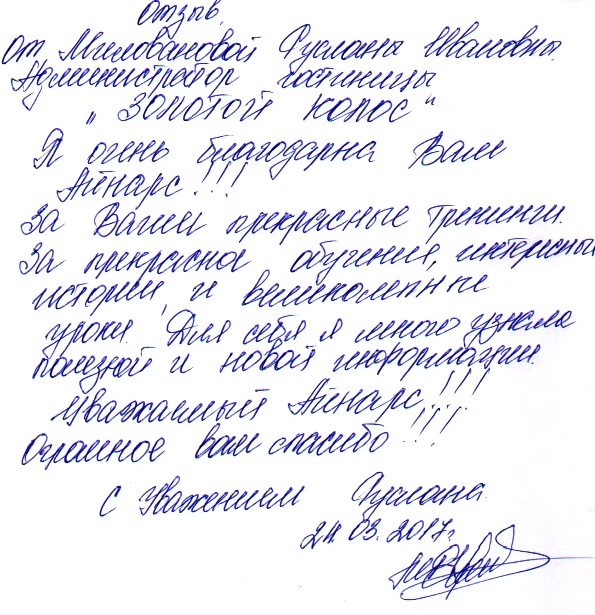 Отзыв.
от Миловановой Русланы Ивановны.
Администратор гостиницы
„ Золотой колос"
Я очень благодарна Вам
Айнарс!!!
За Ваши прекрасные тренинги.
За прекрасное обучения, интересные
истории, и великолепные
уроки. Для себя я много узнала
полезной и новой информации.
Уважаемый Айнарс!!!
Огромное вам спасибо!!!
С Уважением Руслана.
24.03.2017г